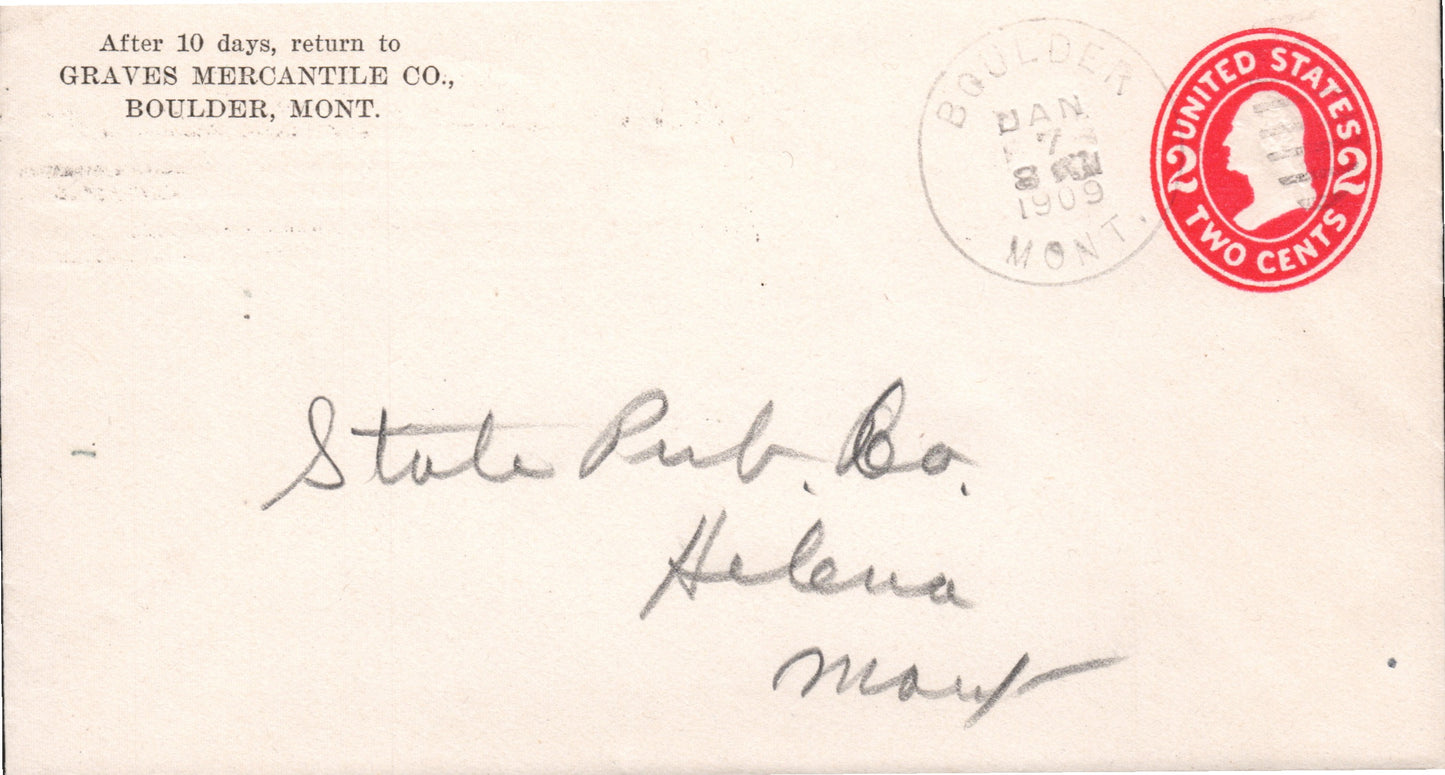 After 10 days, return to
GRAVES MERCANTILE CO.,
BOULDER, MONT.
BOULDER
JAN
7
8
1909
MONT.
UNITED STATES
2 2
TWO CENTS
State Pub. Co.
Helena
Mont